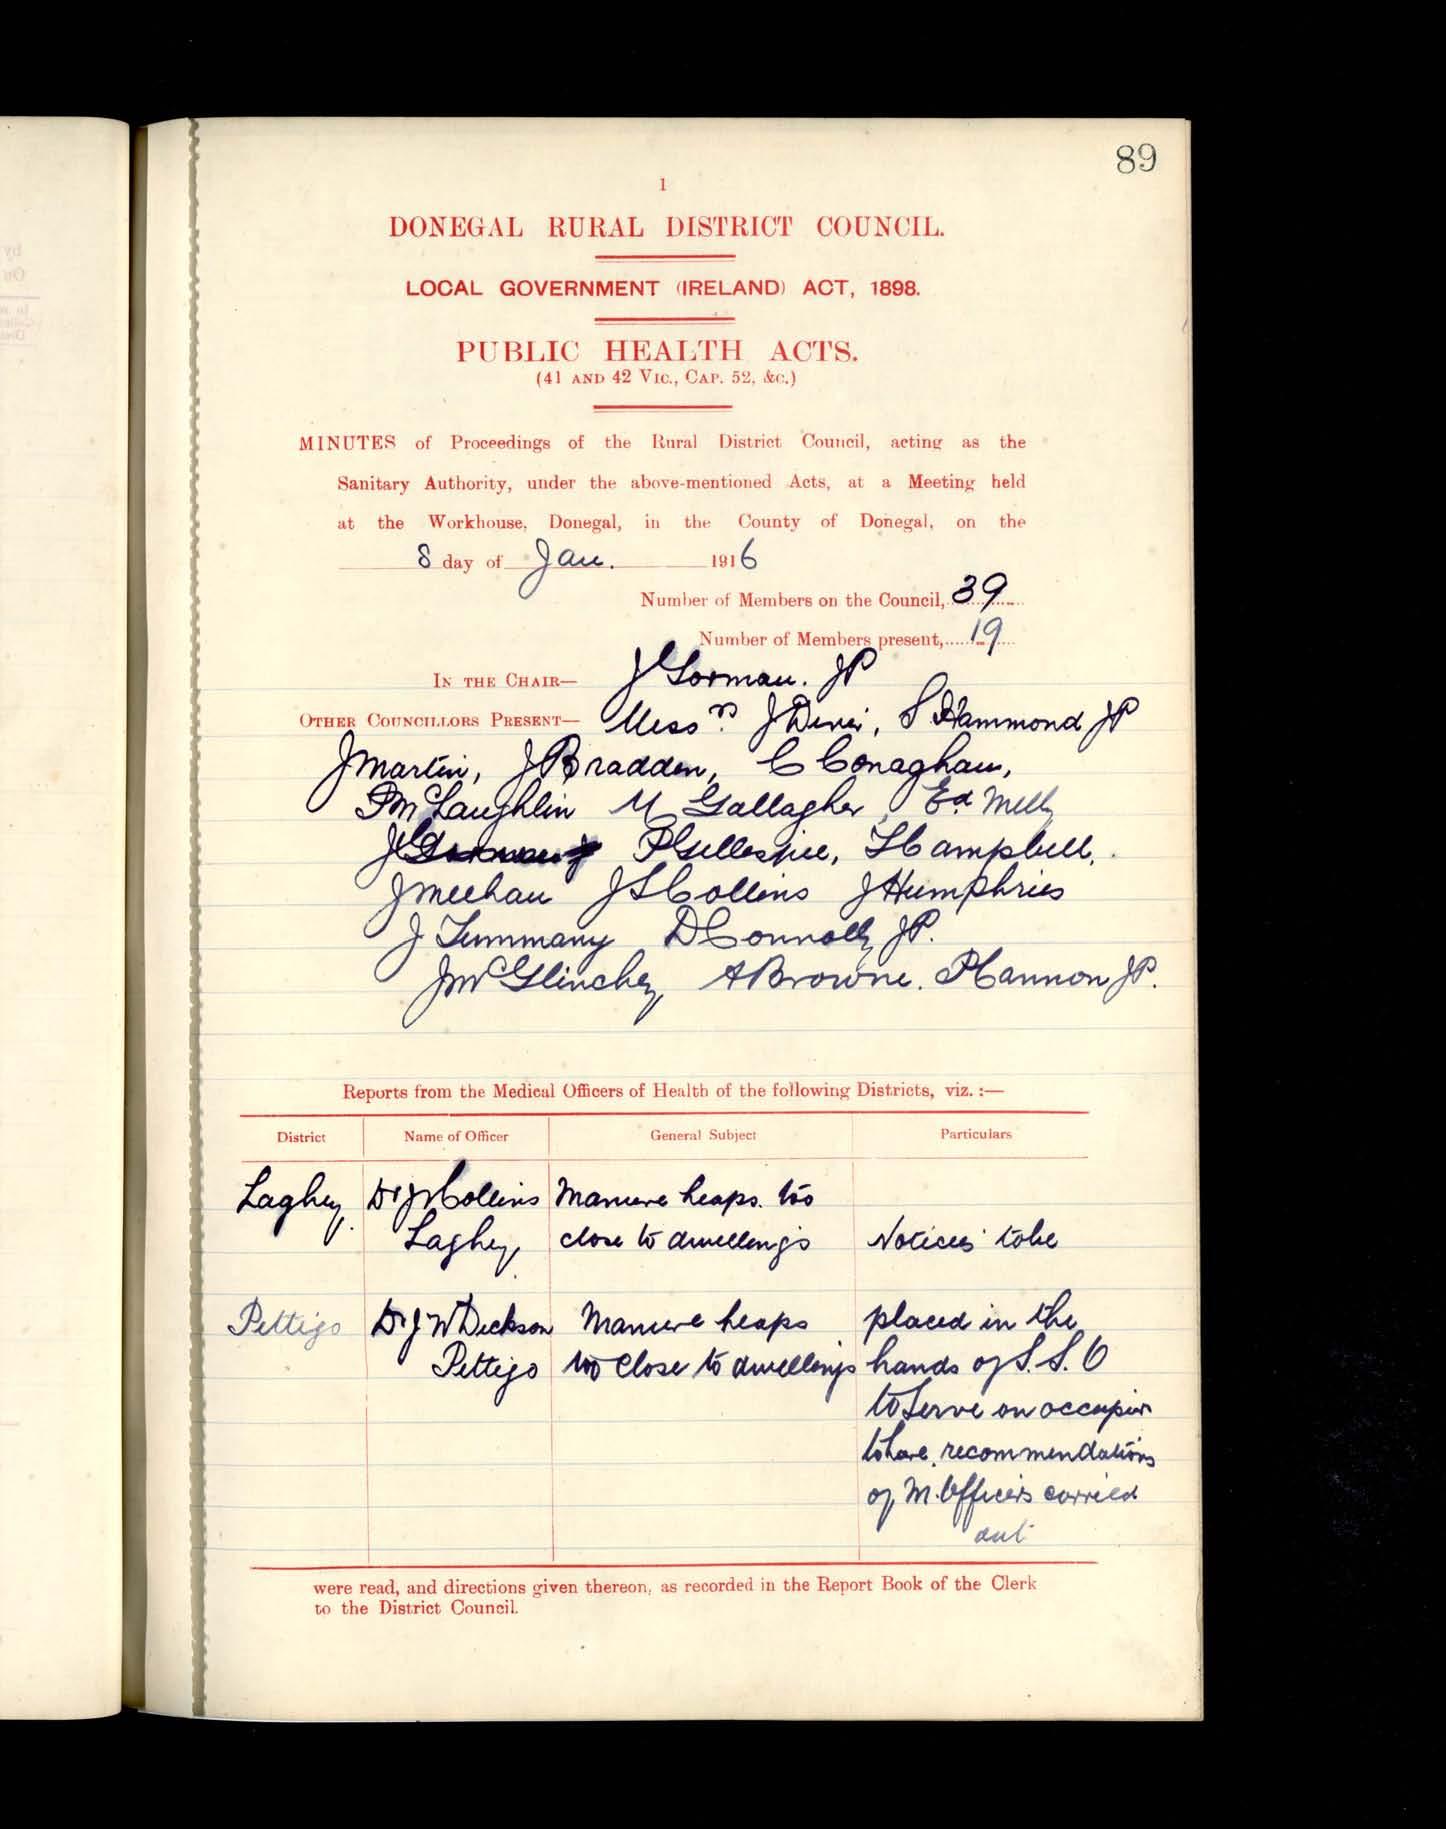 89
1
DONEGAL RURAL DISTRICT COUNCIL.
LOCAL GOVERNMENT (IRELAND) ACT, 1898.
PUBLIC HEALTH ACTS.
(41 AND 42 VIC., CAP. 52, &C.)
MINUTES of Proceedings of the Rural District Council, acting as the
Sanitary Authority, under the above-mentioned Acts, at a Meeting held
at the Workhouse, Donegal, in the County of Donegal, on the
8 day of Jan. 1916
Number of Members on the Council, 39
Number of Members present, 19
IN THE CHAIR— J Gorman. JP
OTHER COUNCILLORS PRESENT— Messrs. J S Hammond JP
J Martin, J Bradden, C Conaghan,
P McLaughlin M Gallagher, Ed Melly
P Gillespie, T Campbell,
J Meehan J S Collins J Humphries
J Timmany D Connolly JP.
J McGlinchey A Browne. P Cannon JP.
Reports from the Medical Officers of Health of the following Districts, viz. :—
District Name of Officer General Subject Particulars
Laghey. Dr J Collins Manure heaps. too
Laghey, close to dwellings Notices to be
Pettigo Dr J W Dickson Manure heaps placed in the
Pettigo too close to dwellings hands of S. S. O
to serve on occupier
to have recommendations
of M. Officers carried
out
were read, and directions given thereon, as recorded in the Report Book of the Clerk
to the District Council.